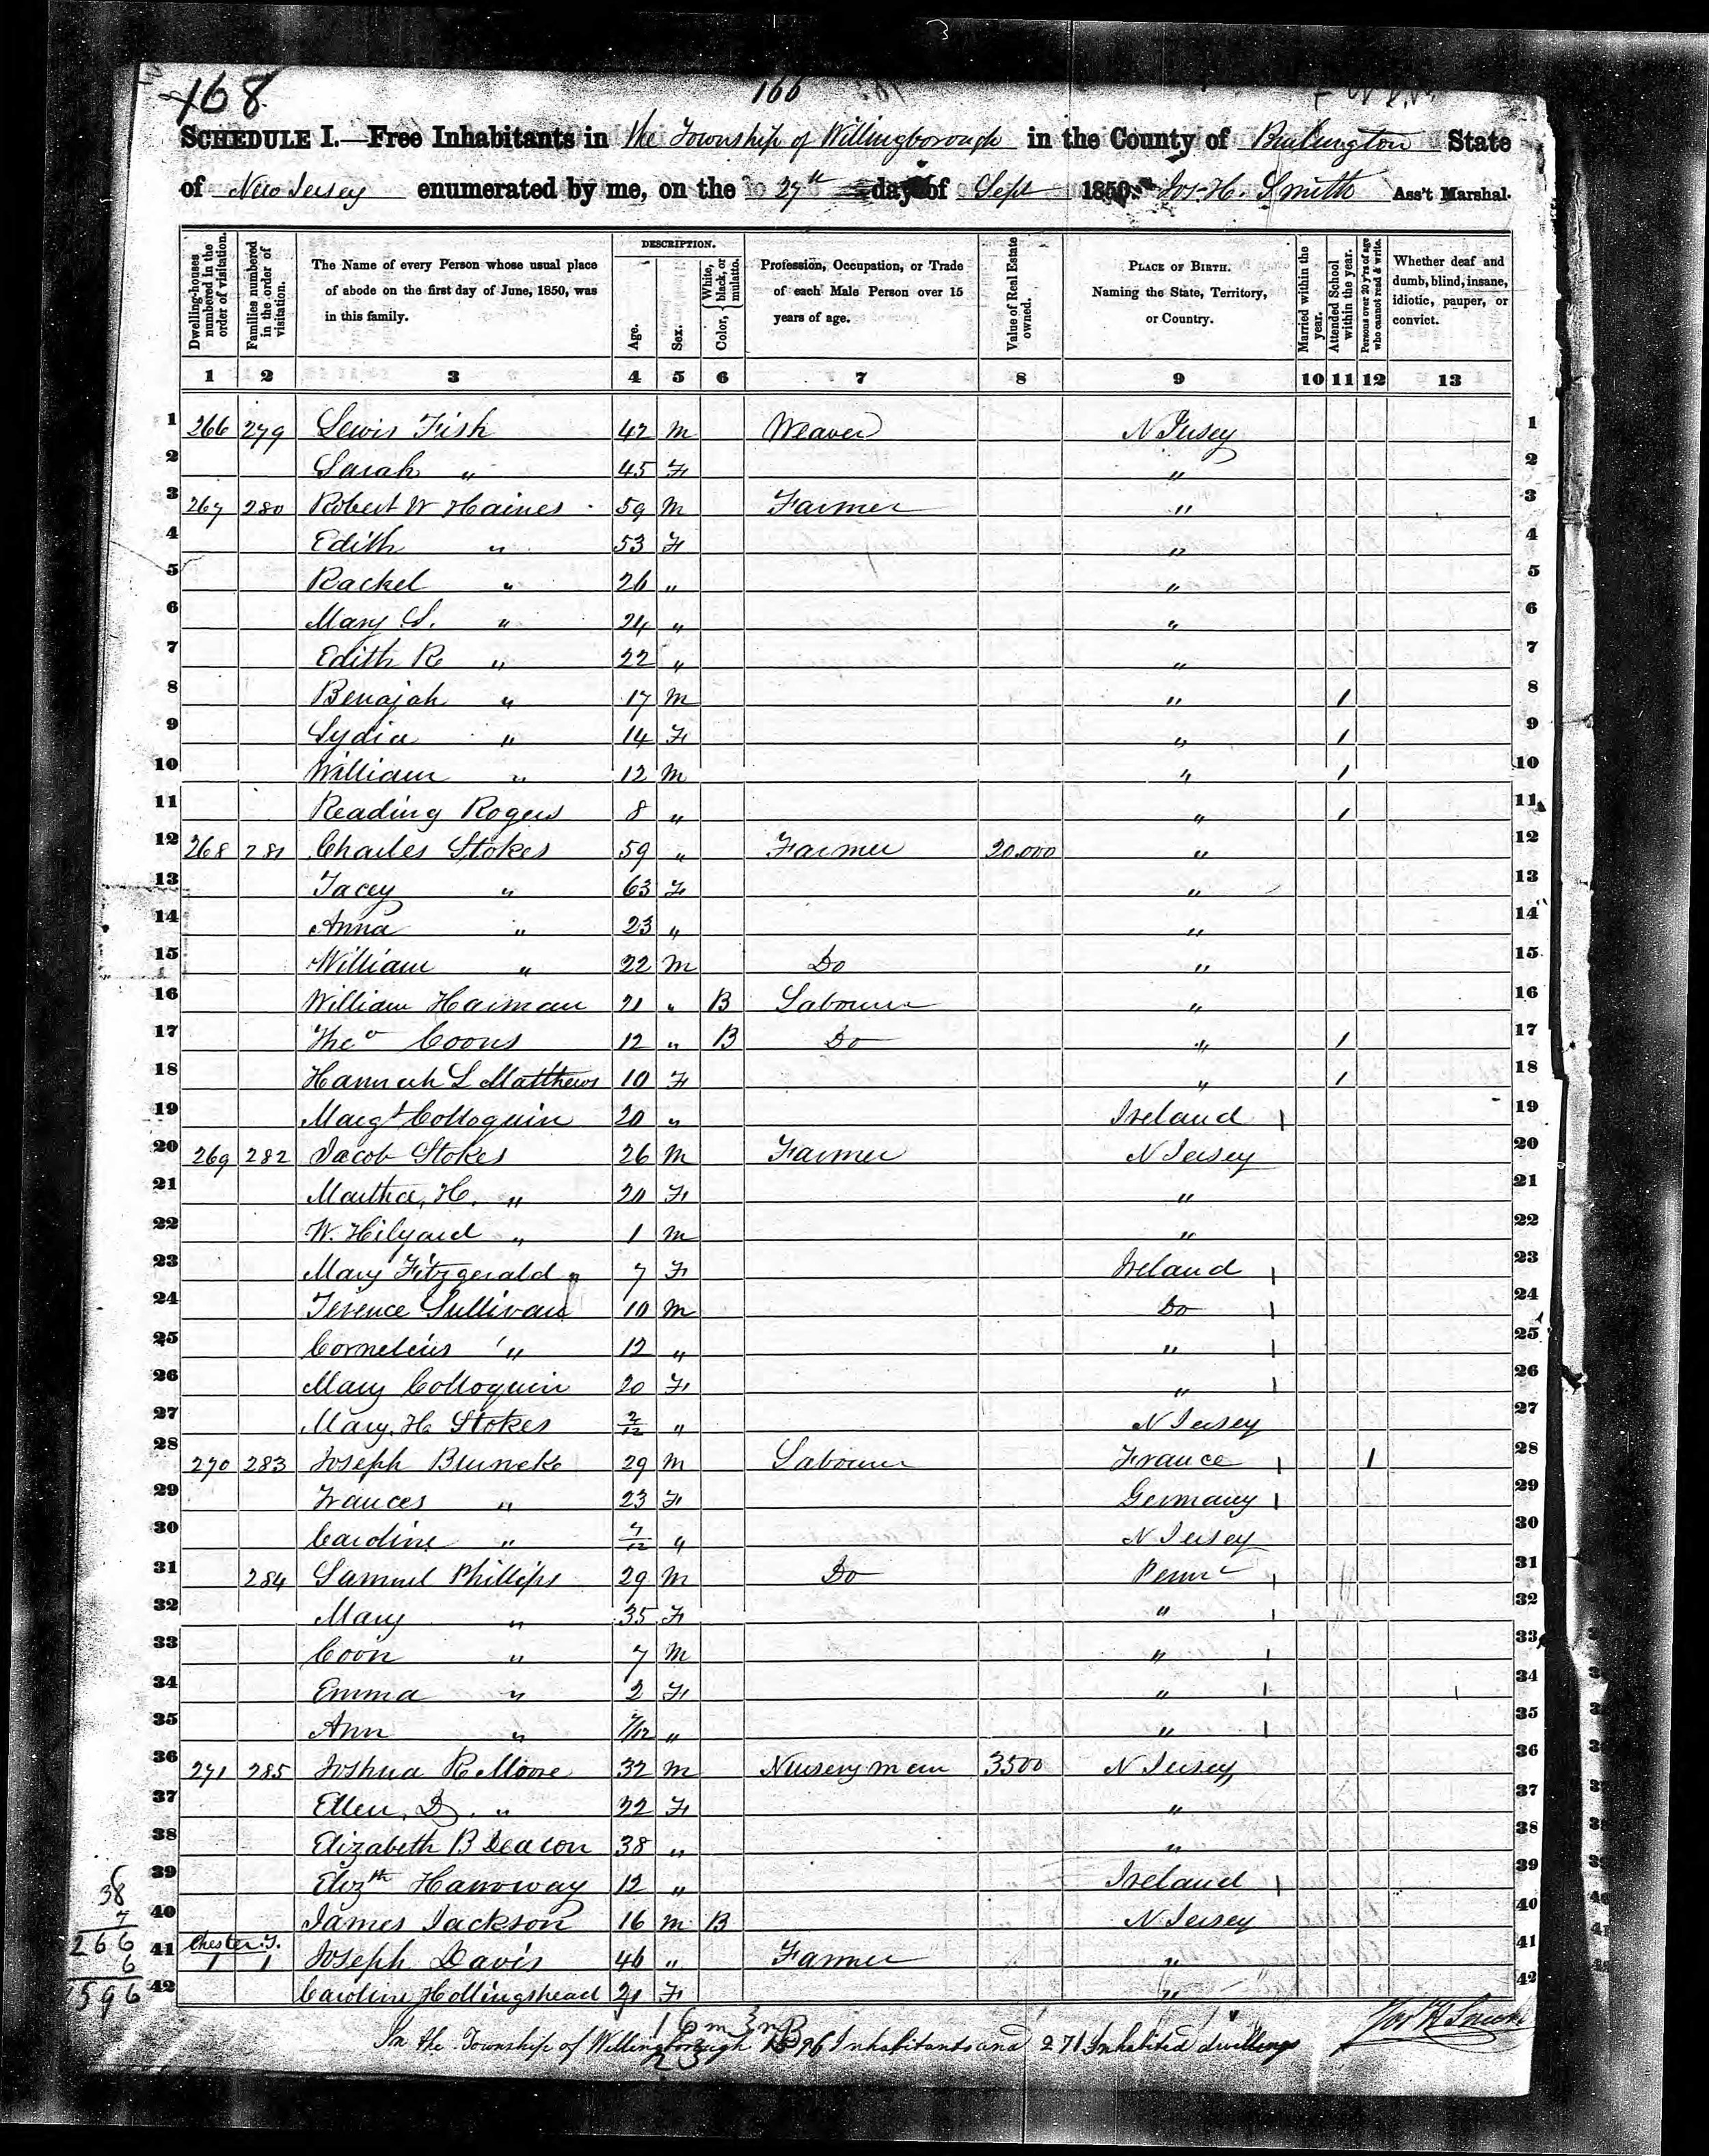 168
166
SCHEDULE I.—Free Inhabitants in the Township of Willingborough in the County of Burlington State
of New Jersey enumerated by me, on the 27th day of Sept 1850. Jos. H. Smith Ass't Marshal.
Dwelling-houses numbered in the order of visitation.
Families numbered in the order of visitation.
The Name of every Person whose usual place of abode on the first day of June, 1850, was in this family.
DESCRIPTION.
Age.
Sex.
Color, { White, black, or mulatto.
Profession, Occupation, or Trade of each Male Person over 15 years of age.
Value of Real Estate owned.
PLACE OF BIRTH. Naming the State, Territory, or Country.
Married within the year.
Attended School within the year.
Persons over 20 y'rs of age who cannot read & write.
Whether deaf and dumb, blind, insane, idiotic, pauper, or convict.
1 2 3 4 5 6 7 8 9 10 11 12 13
1 266 279 Lewis Fish 42 M Weaver N Jersey 1
2 Sarah " 45 F " 2
3 267 280 Robert W Haines 59 M Farmer " 3
4 Edith " 53 F " 4
5 Rachel " 26 " " 5
6 Mary S. " 24 " " 6
7 Edith R " 22 " " 7
8 Benajah " 17 M " 1 8
9 Lydia " 14 F " 1 9
10 William " 12 M " 1 10
11 Reading Rogers 8 " " 1 11
12 268 281 Charles Stokes 59 " Farmer 20.000 " 12
13 Tacey " 63 F " 13
14 Anna " 23 " " 14
15 William " 22 M Do " 15
16 William Haiman 21 " B Labourer " 16
17 Theo Coons 12 " B Do " 1 17
18 Hannah L Matthews 10 F " 1 18
19 Margt Colloquin 20 " Ireland 19
20 269 282 Jacob Stokes 26 M Farmer N Jersey 20
21 Martha, H. " 20 F " 21
22 W. Hilyard " 1 M " 22
23 Mary Fitzgerald 7 F Ireland 23
24 Terence Sullivan 10 M Do 24
25 Cornelius " 12 " " 25
26 Mary Colloquin 20 F " 26
27 Mary. H. Stokes 2/12 " N Jersey 27
28 270 283 Joseph Bluncke 29 M Labourer France 1 28
29 Frances " 23 F Germany 29
30 Caroline " 7/12 " N Jersey 30
31 284 Samuel Phillips 29 M Do Penna 31
32 Mary " 35 F " 32
33 Coon " 7 M " 33
34 Emma " 2 F " 34
35 Ann " 7/12 " " 35
36 271 285 Joshua R Moore 32 M Nurseryman 3500 N Jersey 36
37 Ellen, D. " 22 F " 37
38 Elizabeth B Deacon 38 " " 38
39 Elizth Hanoway 12 " Ireland 39
40 James Jackson 16 M B N Jersey 40
Chester T.
41 1 1 Joseph Davis 46 " Farmer " 41
42 Caroline Hollingshead 21 F " 42
38
7
266
6
1596
16 m 3 mB
23
In the Township of Willingborough 1596 Inhabitants and 271 Inhabited dwellings